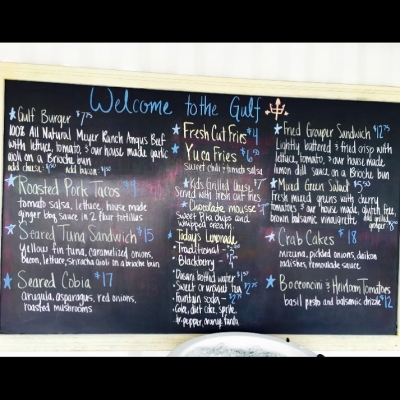 Welcome to the Gulf
Gulf Burger $7.75
100% All Natural Meyer Ranch Angus Beef
with lettuce, tomato, & our house made garlic
aioli on a Brioche bun
add cheese $.50 add bacon
Roasted Pork Tacos
tomato salsa, lettuce, house made
ginger bbq sauce in 2 flour tortillas
Seared Tuna Sandwich $15
Yellow fin tuna, caramelized onions,
bacon, lettuce, sriracha aioli on a brioche bun
Seared Cobia $17
arugula, asparagus, red onions,
roasted mushrooms
Fresh Cut Fries $4
Yuca Fries $6.50
sweet chili & tomato salsa
Kids Grilled Cheese $7
Served with fresh cut fries
Chocolate mousse
sweet pita chips and
whipped cream
Today's Lemonade
Traditional
Blackberry
Dasani bottled water
Sweet or unsweet tea $2.75
Fountain soda $2.75
Coke, diet coke, sprite
dr. pepper, orange fanta
Fried Grouper Sandwich $12.75
Lightly battered & fried crisp with
lettuce, tomato, & our house made
lemon dill sauce on a Brioche bun
Mixed Green Salad $5.50
Fresh mixed greens with cherry
tomatoes & our house made,
brown balsamic vinaigrette add grouper
Crab Cakes $18
mizuna, pickled onions, daikon
radishes, remoulade sauce
Bocconcini & Heirloom Tomatoes
basil pesto and balsamic drizzle $12